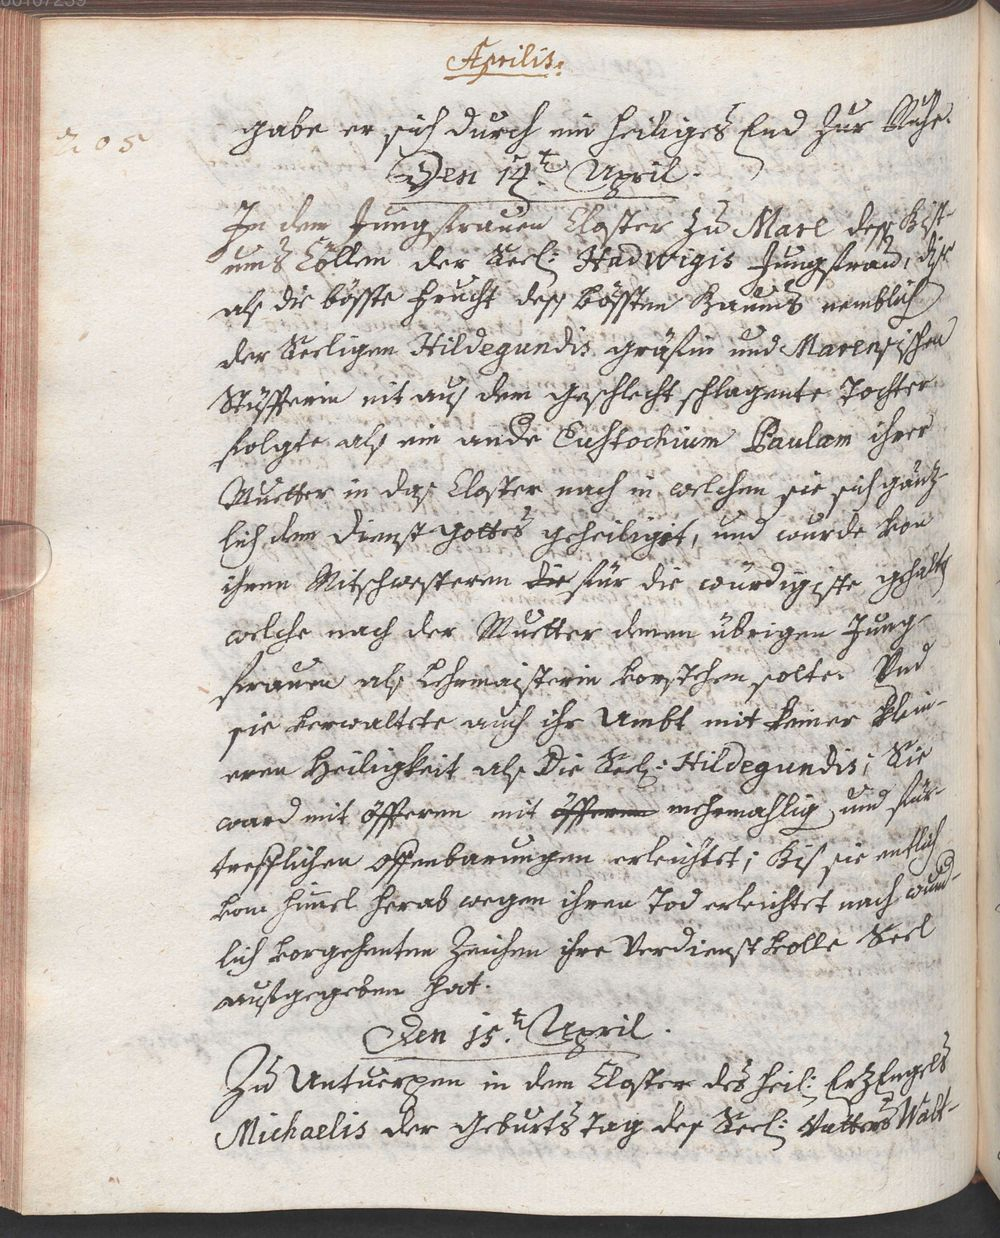 00107239
Aprilis.
205
gabe er sich durch ein heiliges End zur Ruhe.
Den 14.t April.
In dem Jungfrauen Closter zu Mare deß Bist-
umbs Cöllen der Seel: Hadwigis Jungfrau, dise
alß die böste Frucht deß bösten Baums nemblich
der Seeligen Hildegundis gräfin und Marensischen
Stüffterin nit auß dem geschlecht schlagente Tochter
folgte alß ein andre Eustochium Paulam ihrer
Muetter in daß Closter nach in welchen sie sich gänz-
lich dem Dienst Gottes geheiliget, und wurde von
ihren Mitschwesteren die für die würdigiste gehalt
welche nach der Muetter denen übrigen Jung-
frauen alß Lehrmaisterin vorstehen solte. Und
sie verwaltete auch ihr Ambt mit keiner klein-
eren Heiligkeit alß Die Seel: Hildegundis; Sie
ward mit öffteren mit öffteren mehrmahlig und für-
trefflichen offenbarungen erleichtet; biß sie entlich
vom himel herab wegen ihren Tod erleichtet nach wund-
lich vorgehenten Zeichen ihre Verdienstvolle Seel
aufgegeben hat.
Den 15.t April.
Zu Antuerpen in dem Closter des heil: ErzEngels
Michaelis der Geburts Tag deß Seel: Vatters Walt-